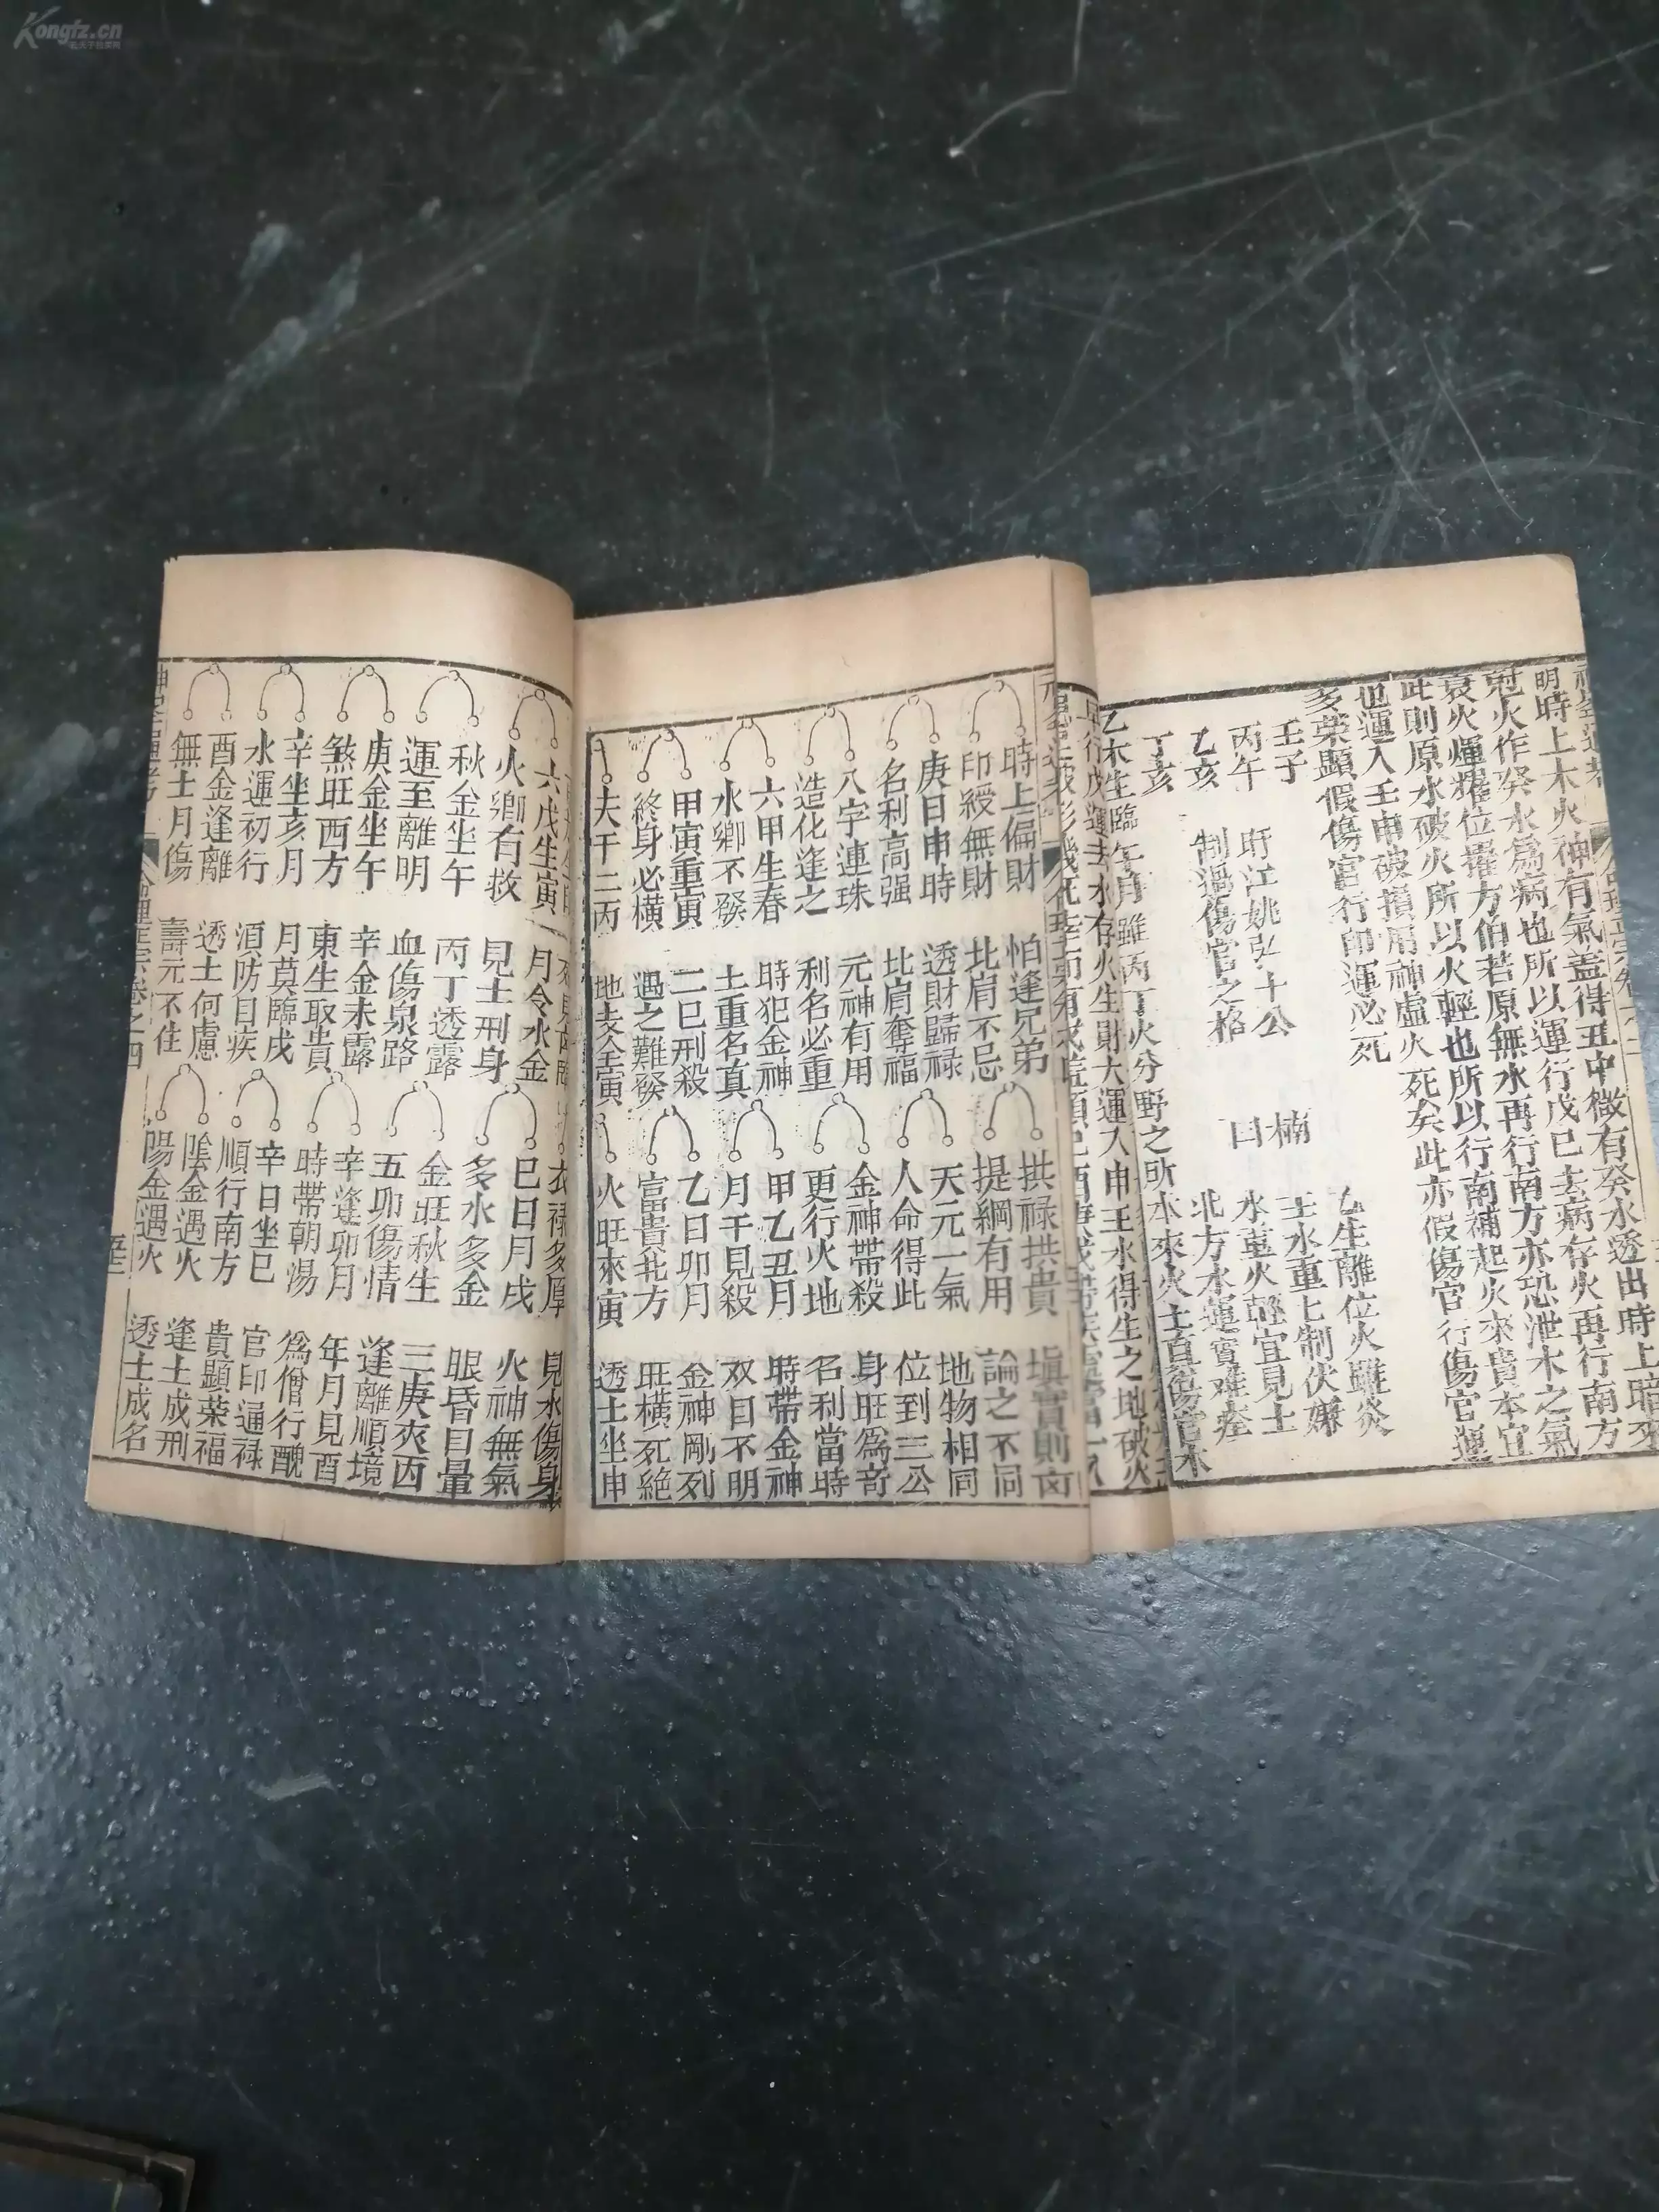 Kongfz.cn
明時上木火神有氣蓋得丑中微有癸水透出時上暗來
尅火作癸水為病也所以運行戊己去病存火再行南方
衰火煇耀位擢方伯若原無水再行南方亦恐泄木之氣
此則原水破火所以火輕也所以行南補起火來貴本宜
也運入壬申破損用神虛火死矣此亦假傷官行傷官運
多榮顯假傷官行印運必死
壬子
丙午 盱江姚弘十公 楠
乙亥 制過傷官之格 曰
丁亥
乙生離位火雖炎
壬水重重上制伏嫌
水重火輕宜見土
北方水運實难痊
乙木生臨午月雖丙丁火分野之所本來火土真傷官木
時上偏財 怕逢兄弟 拱禄拱貴 填實則凶
印綬無財 比肩不忌 提綱有用 論之不同
庚日申時 透財歸禄 天元一氣 地物相同
名利高强 比肩奪福 人命得此 位到三公
八字連珠 元神有用 金神帶殺 身旺為奇
造化逢之 利名必重 更行火地 名利當時
六甲生春 時犯金神 甲乙丑月 時帶金神
水鄉不發 土重名真 月干見殺 双目不明
甲寅重寅 二巳刑殺 乙日卯月 金神剛列
終身必橫 遇之難發 富貴北方 旺橫死絶
夫干二丙 地支全寅 火旺來寅 透土坐申
六戊生寅 月令水金 衣禄多厚 見水傷身
火鄉有救 見土刑身 巳日月戌 火神無氣
秋金坐午 丙丁透露 多水多金 眼昏目暈
運至離明 血傷泉路 金旺秋生 三庚夾丙
庚金坐午 辛金未露 五卯傷情 逢離順境
煞旺西方 東生取貴 辛逢卯月 年月見酉
辛坐亥月 月莫臨戌 時帶朝湯 為僧行醜
水運初行 須防目疾 辛日坐巳 官印遁禄
酉金逢離 透土何慮 順行南方 貴顯榮福
無土月傷 壽元不住 陰金遇火 逢土成刑
陽金遇火 透土成名